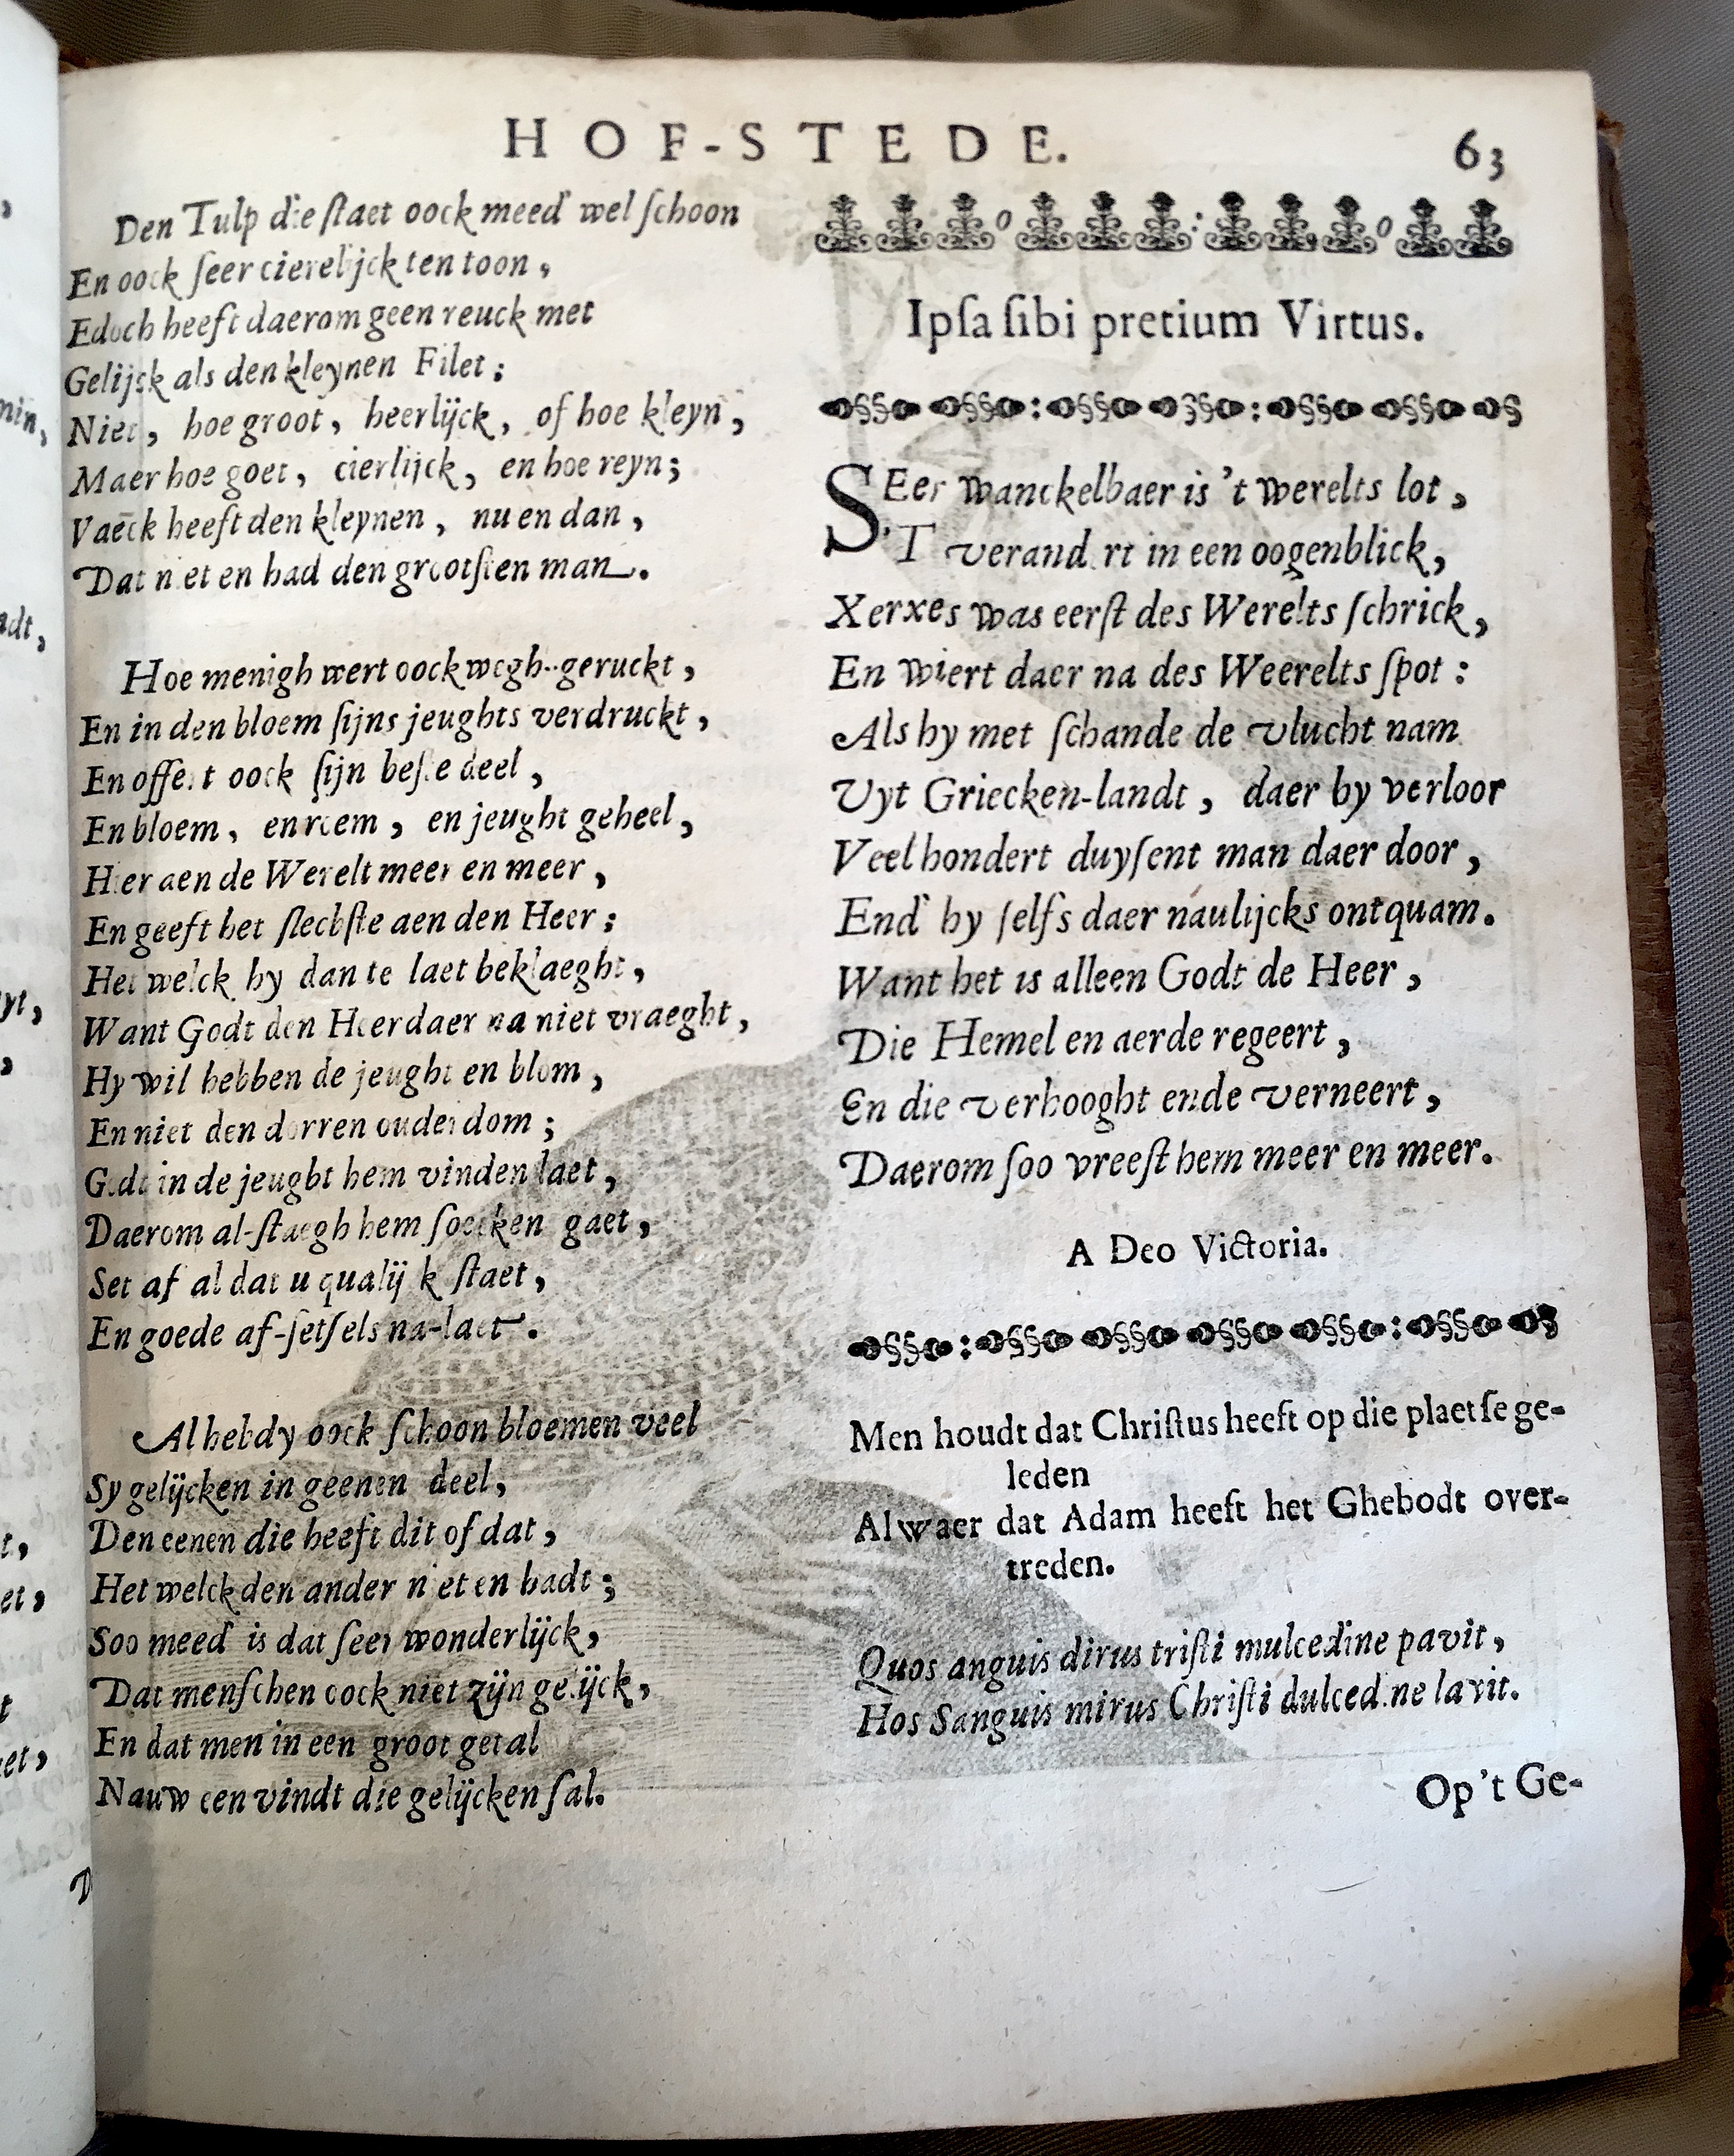 HOF-STEDE. 63
Den Tulp die ſtaet oock meed' wel ſchoon
En oock ſeer cierelijck ten toon,
Edoch heeft daerom geen reuck met
Gelijck als den kleynen Filet;
Niet, hoe groot, heerlijck, of hoe kleyn,
Maer hoe goet, cierlijck, en hoe reyn;
Vaeck heeft den kleynen, nu en dan,
Dat niet en had den grootſten man.
Hoe menigh wert oock wegh-geruckt,
En in den bloem ſijns jeughts verdruckt,
En offert oock ſijn beſte deel,
En bloem, en roem, en jeught geheel,
Hier aen de Werelt meer en meer,
En geeft het ſlechſte aen den Heer;
Het welck hy dan te laet beklaeght,
Want Godt den Heer daer na niet vraeght,
Hy wil hebben de jeught en blom,
En niet den dorren ouderdom;
Godt in de jeught hem vinden laet,
Daerom al-ſtaegh hem ſoecken gaet,
Set af al dat u qualijck ſtaet,
En goede af-ſetſels na-laet.
Al hebdy oock ſchoon bloemen veel
Sy gelijcken in geenen deel,
Den eenen die heeft dit of dat,
Het welck den ander niet en hadt;
Soo meed' is dat ſeer wonderlijck,
Dat menſchen oock niet zijn gelijck,
En dat men in een groot getal
Nauw een vindt die gelijcken ſal.
Ipſa ſibi pretium Virtus.
SEer wanckelbaer is 't werelts lot,
'T verandert in een oogenblick,
Xerxes was eerſt des Werelts ſchrick,
En wiert daer na des Weerelts ſpot:
Als hy met ſchande de vlucht nam
Uyt Griecken-landt, daer hy verloor
Veel hondert duyſent man daer door,
End' hy ſelfs daer naulijcks ontquam.
Want het is alleen Godt de Heer,
Die Hemel en aerde regeert,
En die verhooght ende verneert,
Daerom ſoo vreeſt hem meer en meer.
A Deo Victoria.
Men houdt dat Chriſtus heeft op die plaetſe ge-
leden
Alwaer dat Adam heeft het Ghebodt over-
treden.
Quos anguis dirus triſti mulcedine pavit,
Hos Sanguis mirus Chriſti dulcedine lavit.
Op 't Ge-